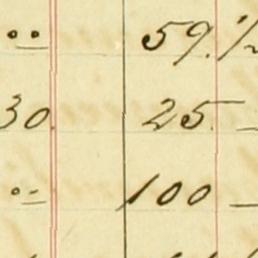 59.
30. 25. —
100 —